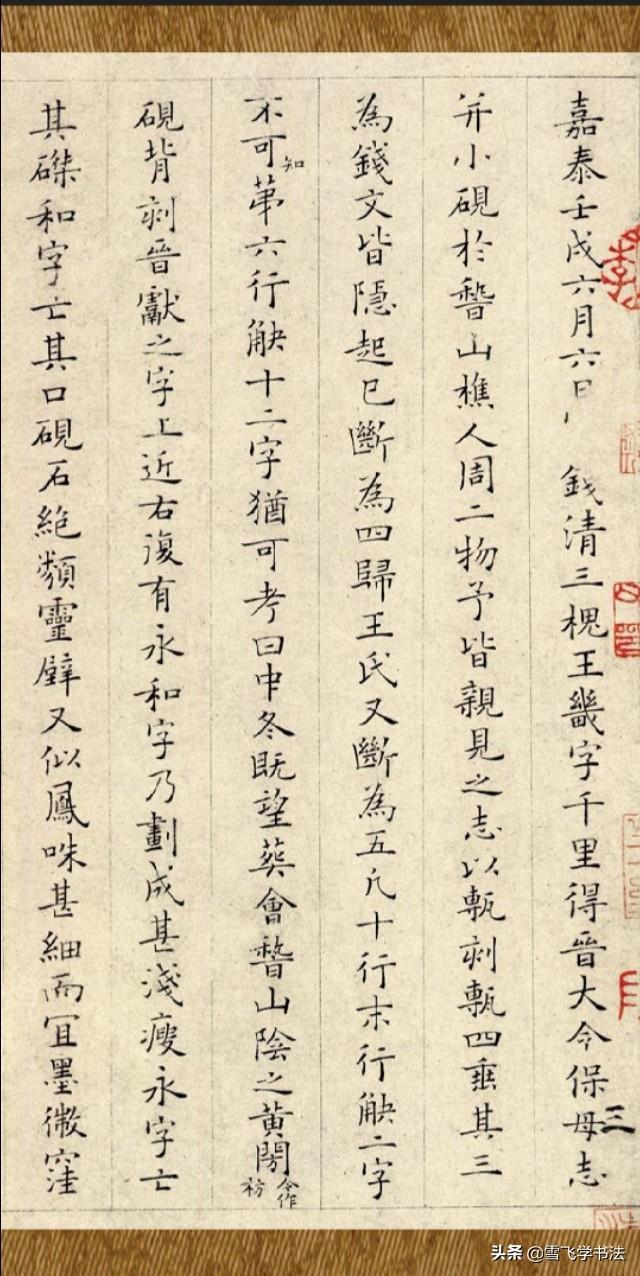 嘉泰壬戌六月六日錢清三槐王畿字千里得晉大令保母志
并小硯於稽山樵人周二物予皆親見之志以甎刻甎四垂其三
為錢文皆隱起已斷為四歸王氏又斷為五凡十行末行觖二字
不可知第六行觖十二字猶可考曰中冬既望葬會稽山陰之黃閍今作祊
硯背刻晉獻之字上近右復有永和字乃劃成甚淺瘦永字亡
其磔和字亡其口硯石絕類靈壁又似鳳咮甚細而宜墨微窪
三
頭条 @雪飞学书法